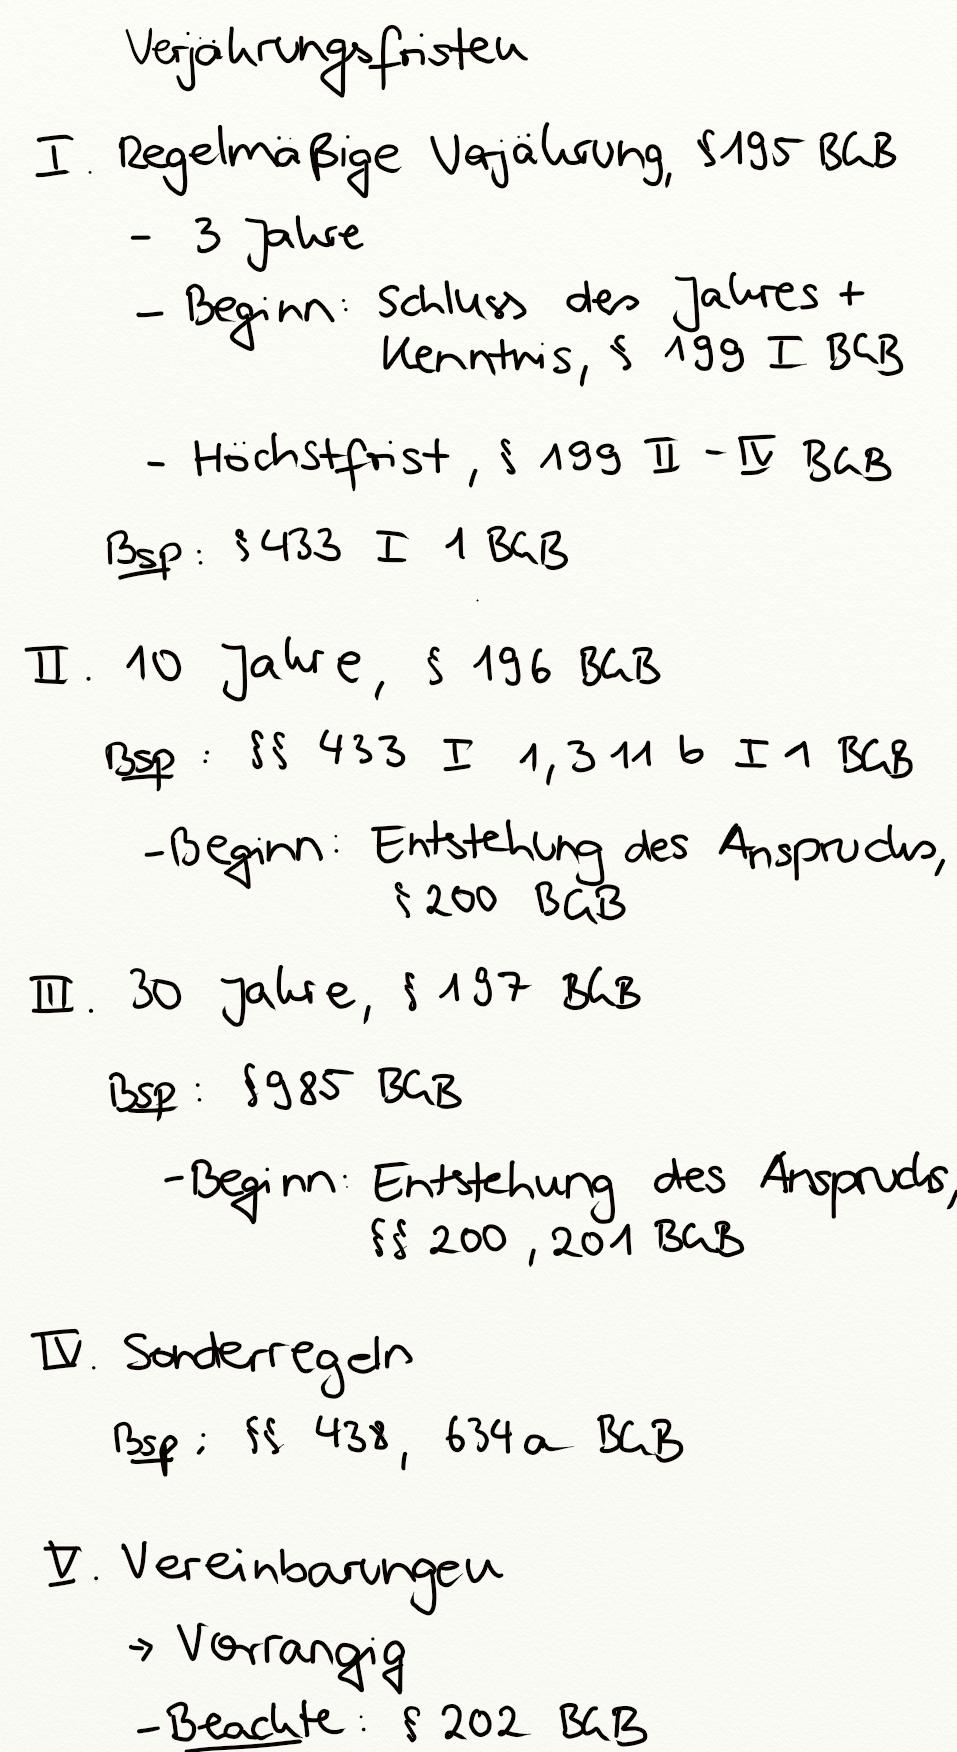 Verjährungsfristen
I. Regelmäßige Verjährung, §195 BGB
- 3 Jahre
- Beginn: Schluss des Jahres +
Kenntnis, § 199 I BGB
- Höchstfrist, § 199 II - IV BGB
Bsp: §433 I 1 BGB
II. 10 Jahre, § 196 BGB
Bsp: §§ 433 I 1, 311 b I 1 BGB
- Beginn: Entstehung des Anspruchs,
§ 200 BGB
III. 30 Jahre, § 197 BGB
Bsp: §985 BGB
- Beginn: Entstehung des Anspruchs,
§§ 200, 201 BGB
IV. Sonderregeln
Bsp: §§ 438, 634a BGB
V. Vereinbarungen
→ Vorrangig
- Beachte: § 202 BGB